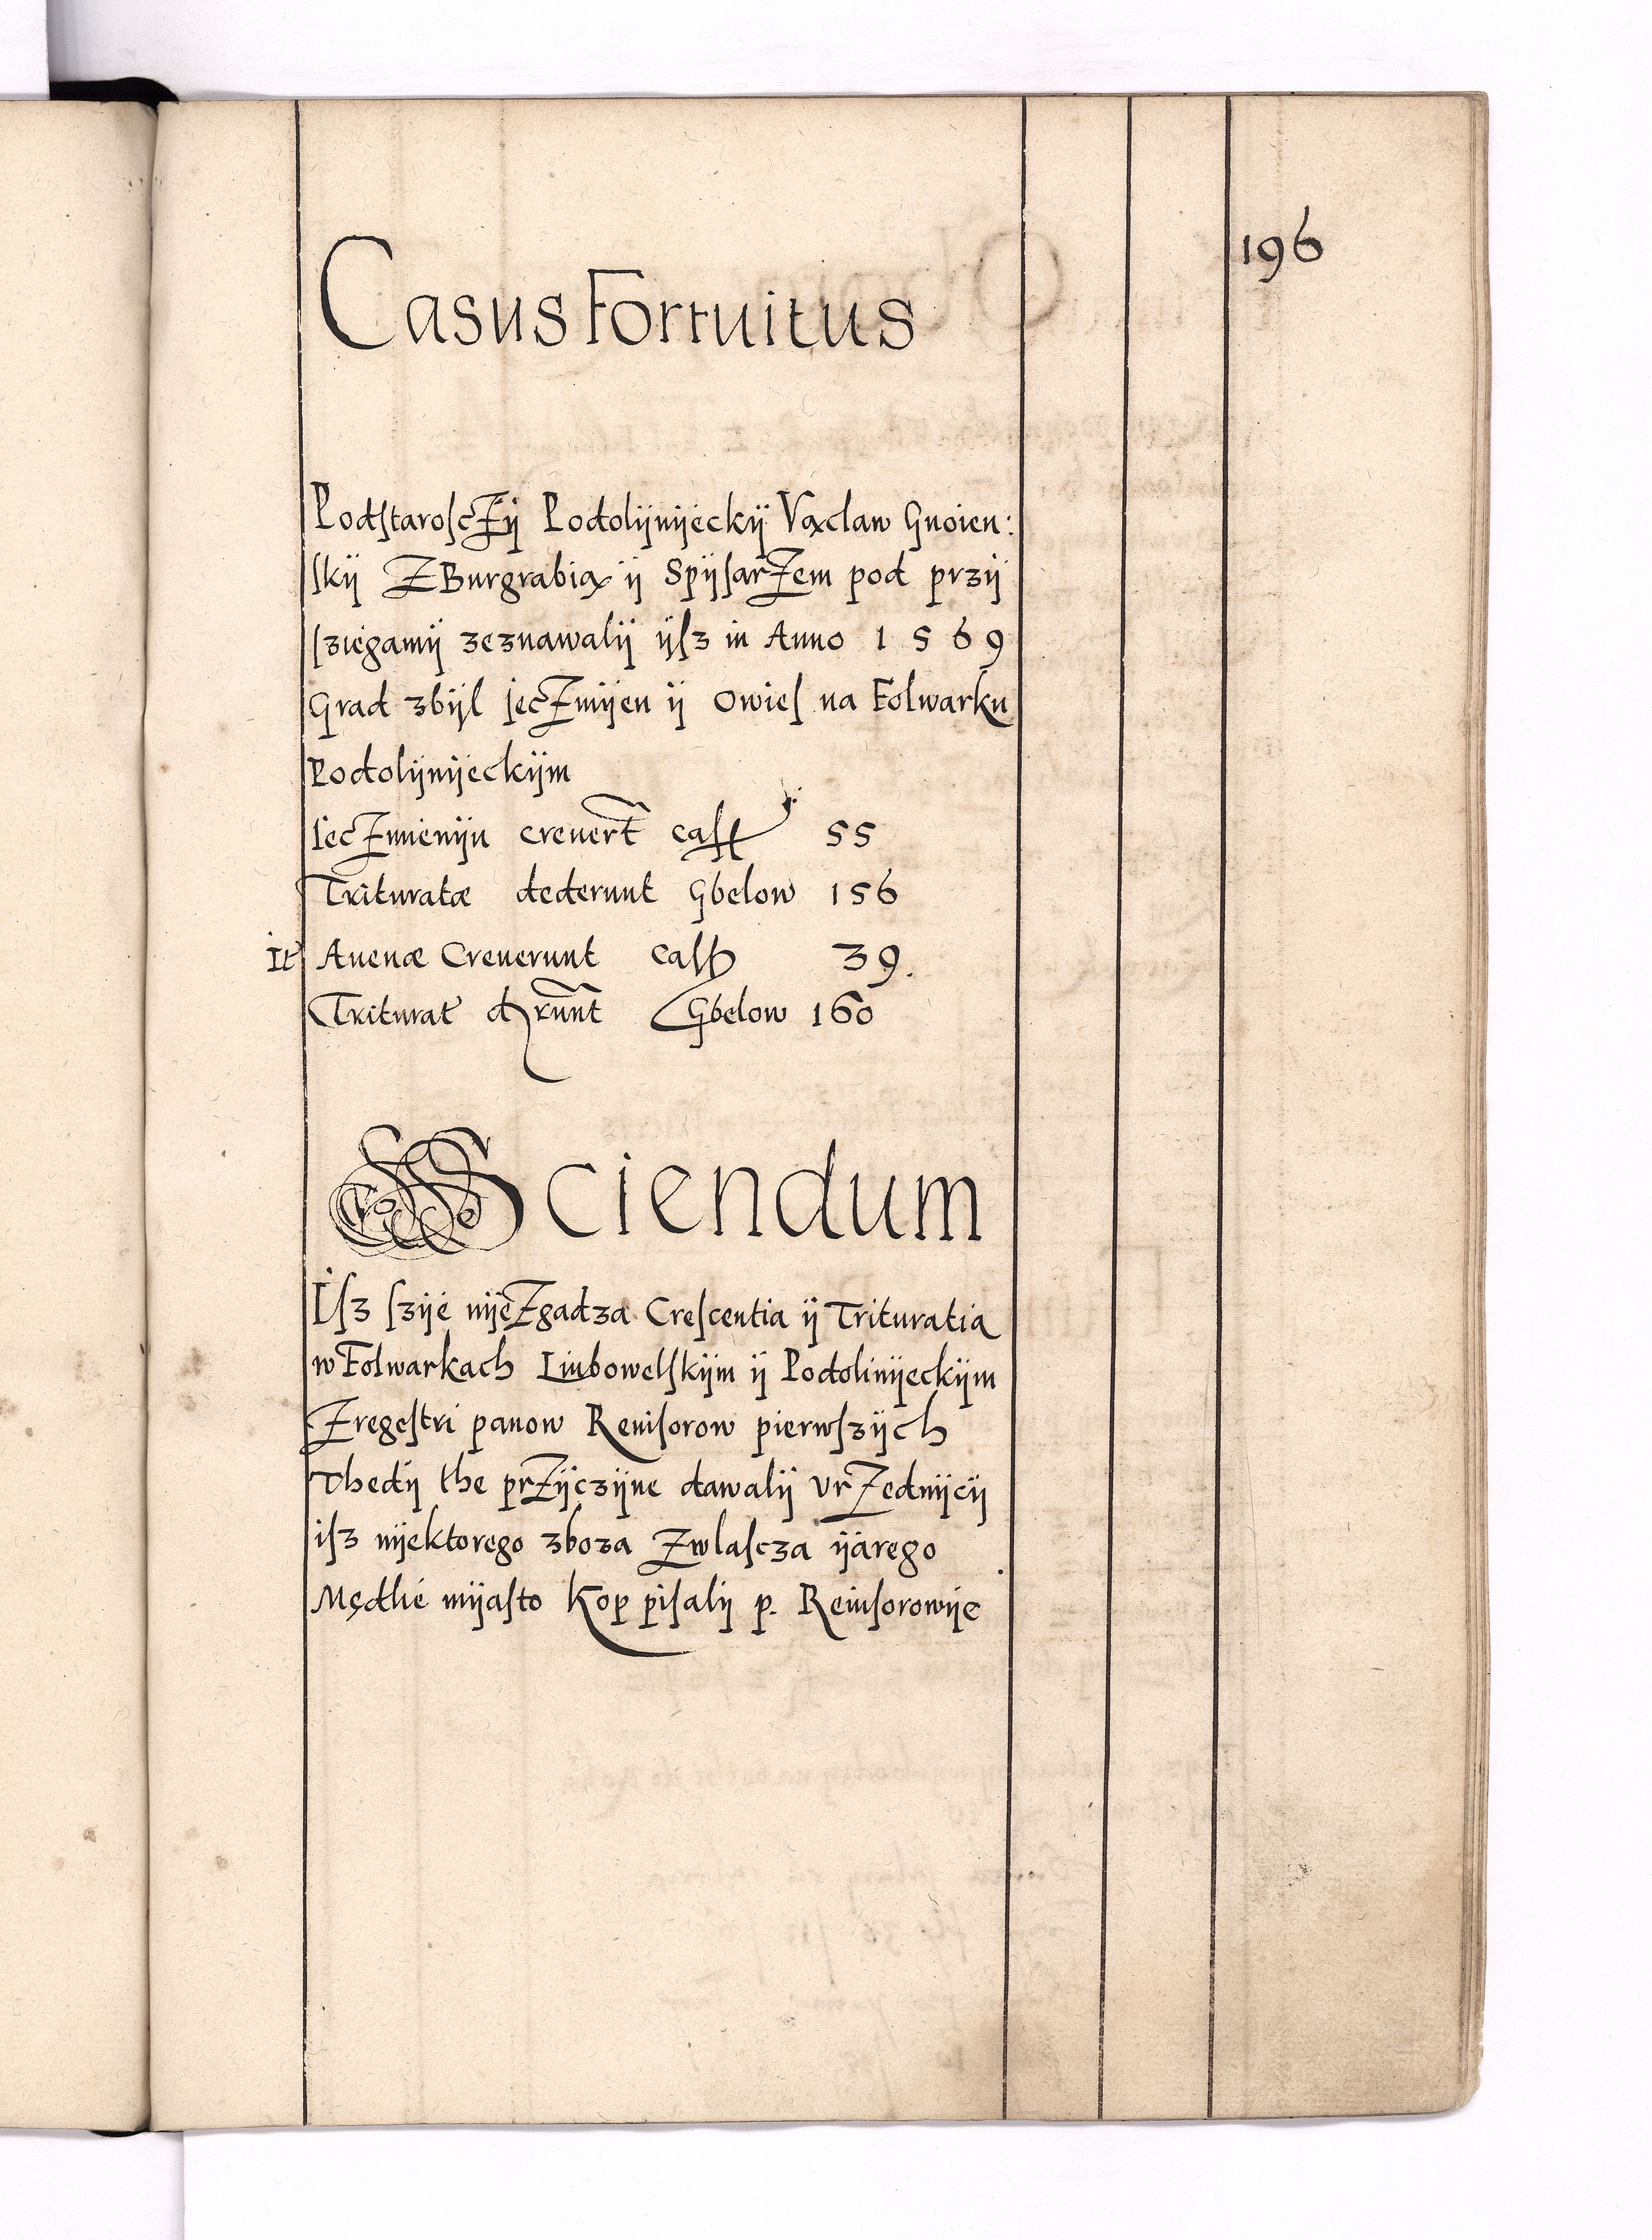 196
Casus Fortuitus
PodſtaroſcZÿ Podolÿnÿeckÿ Vącław Gnoien:
ſkÿ ZBurgrabią ÿ SpÿſarZem pod przÿ
ſzięgamÿ zeznawalÿ ÿſz in Anno 1569
Grad zbÿl JecZmÿen ÿ Owieſ na Folwarku
Podolÿnÿeckÿm
JecZmienÿu creuert̃ caſſ 55
Trituratæ dederunt Gbelow 156
It Auenæ Creuerunt caſſ 39.
Triturat Gbelow 160
Sciendum
Iſz ſzÿe nÿeZgadza Creſcentia ÿ Trituratia
w Folwarkach Liubowelſkÿm ÿ Podolinÿeckÿm
Zregeſtri panow Reuiſorow pierwſzÿch
Thedÿ the prZÿczÿne dawalÿ vrZednÿcÿ
iſz nÿektorego zboza Zwlaſcza ÿarego
Mędlie mÿaſto Kop piſalÿ p. Reuiſorowÿe